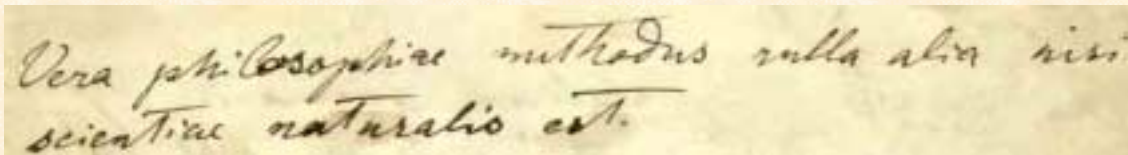 Vera philosophiae methodus nulla alia nisi
scientiae naturalis est.